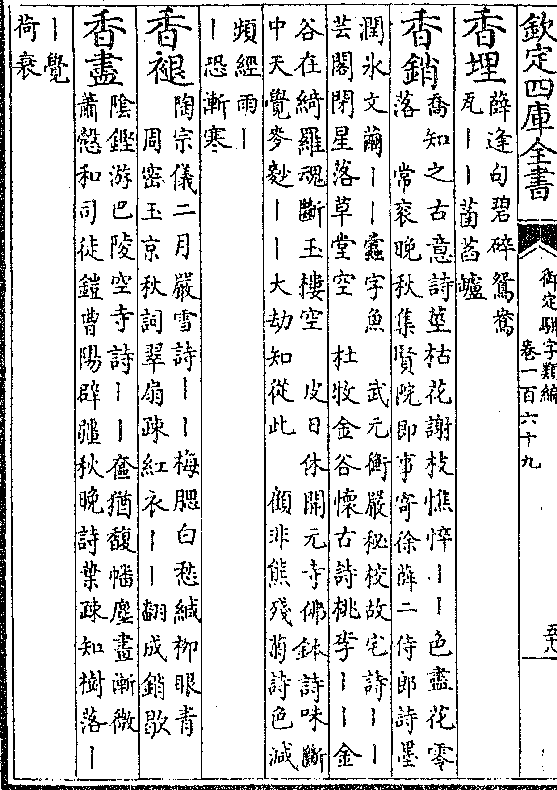 欽定四庫全書
御定駢字類編
卷一百六十九
五八
香埋
薛逢句碧碎鴛鴦
瓦丨丨菌萏爐
香銷
喬知之古意詩莖枯花謝枝憔悴丨丨色盡花零
落 常衮晚秋集賢院即事寄徐薛二侍郎詩墨
潤氷文繭丨丨蠧字魚 武元衡嚴秘校故宅詩丨丨
芸閣閉星落草堂空 杜牧金谷懷古詩桃李丨丨金
谷在綺羅魂斷玉樓空 皮日休開元寺佛鉢詩味斷
中天覺麥麨丨丨大劫知從此 顧非熊殘菊詩色減
頻經雨丨
丨恐漸寒
香褪
陶宗儀二月嚴雪詩丨丨梅腮白愁緘柳眼青
周密玉京秋詞翠扇疎紅衣丨丨翻成銷歇
香盡
陰鏗游巴陵空寺詩丨丨奩猶馥幡塵畫漸微
蕭慤和司徒鎧曹陽辟疆秋晚詩葉疎知樹落丨
丨覺
荷衰